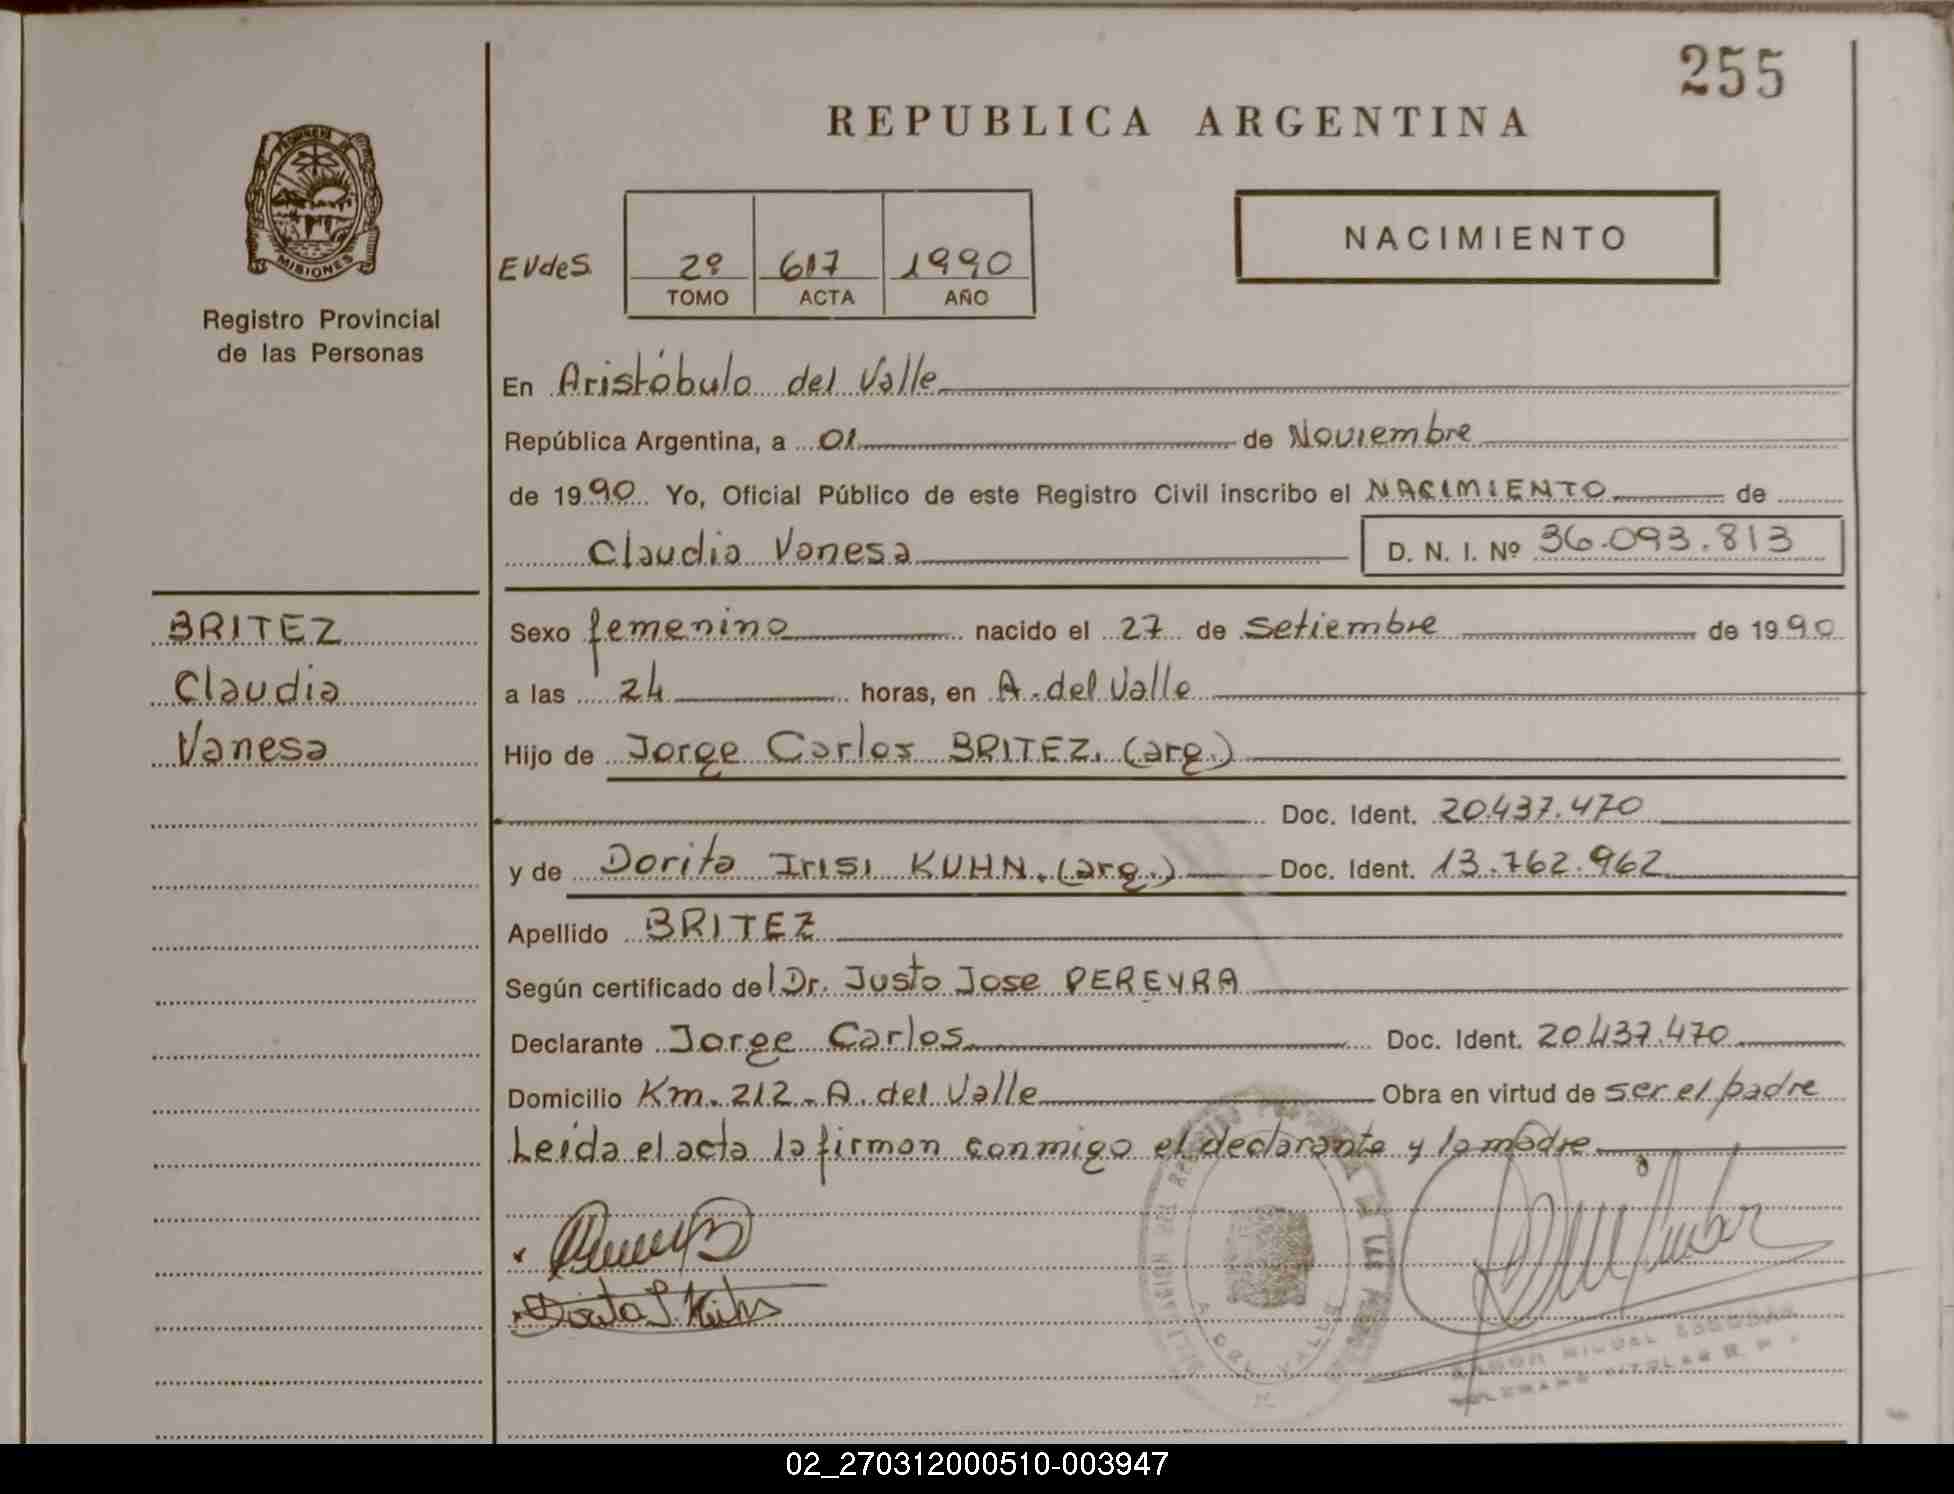 255
REPUBLICA ARGENTINA
PROVINCIA DE
MISIONES
Registro Provincial
de las Personas
NACIMIENTO
EVdeS. 2º 617 1990
TOMO ACTA AÑO
En Aristóbulo del Valle
República Argentina, a 01 de Noviembre
de 1990 Yo, Oficial Público de este Registro Civil inscribo el NACIMIENTO de
Claudia Vanesa D. N. I. Nº 36.093.813
BRITEZ
Claudia
Vanesa
Sexo femenino nacido el 27 de Setiembre de 1990
a las 24 horas, en A. del Valle
Hijo de Jorge Carlos BRITEZ. (arg.)
Doc. Ident. 20.437.470
y de Dorita IRISI KUHN. (arg.) Doc. Ident. 13.762.962
Apellido BRITEZ
Según certificado del Dr. Justo Jose PEREYRA
Declarante Jorge Carlos Doc. Ident. 20.437.470
Domicilio Km. 212 - A. del Valle Obra en virtud de ser el padre
Leída el acta la firman conmigo el declarante y la madre
Dorita I. Kuhn
DELEGACION DEL REGISTRO PROVINCIAL DE LAS PERSONAS
A. DEL VALLE
02_270312000510-003947